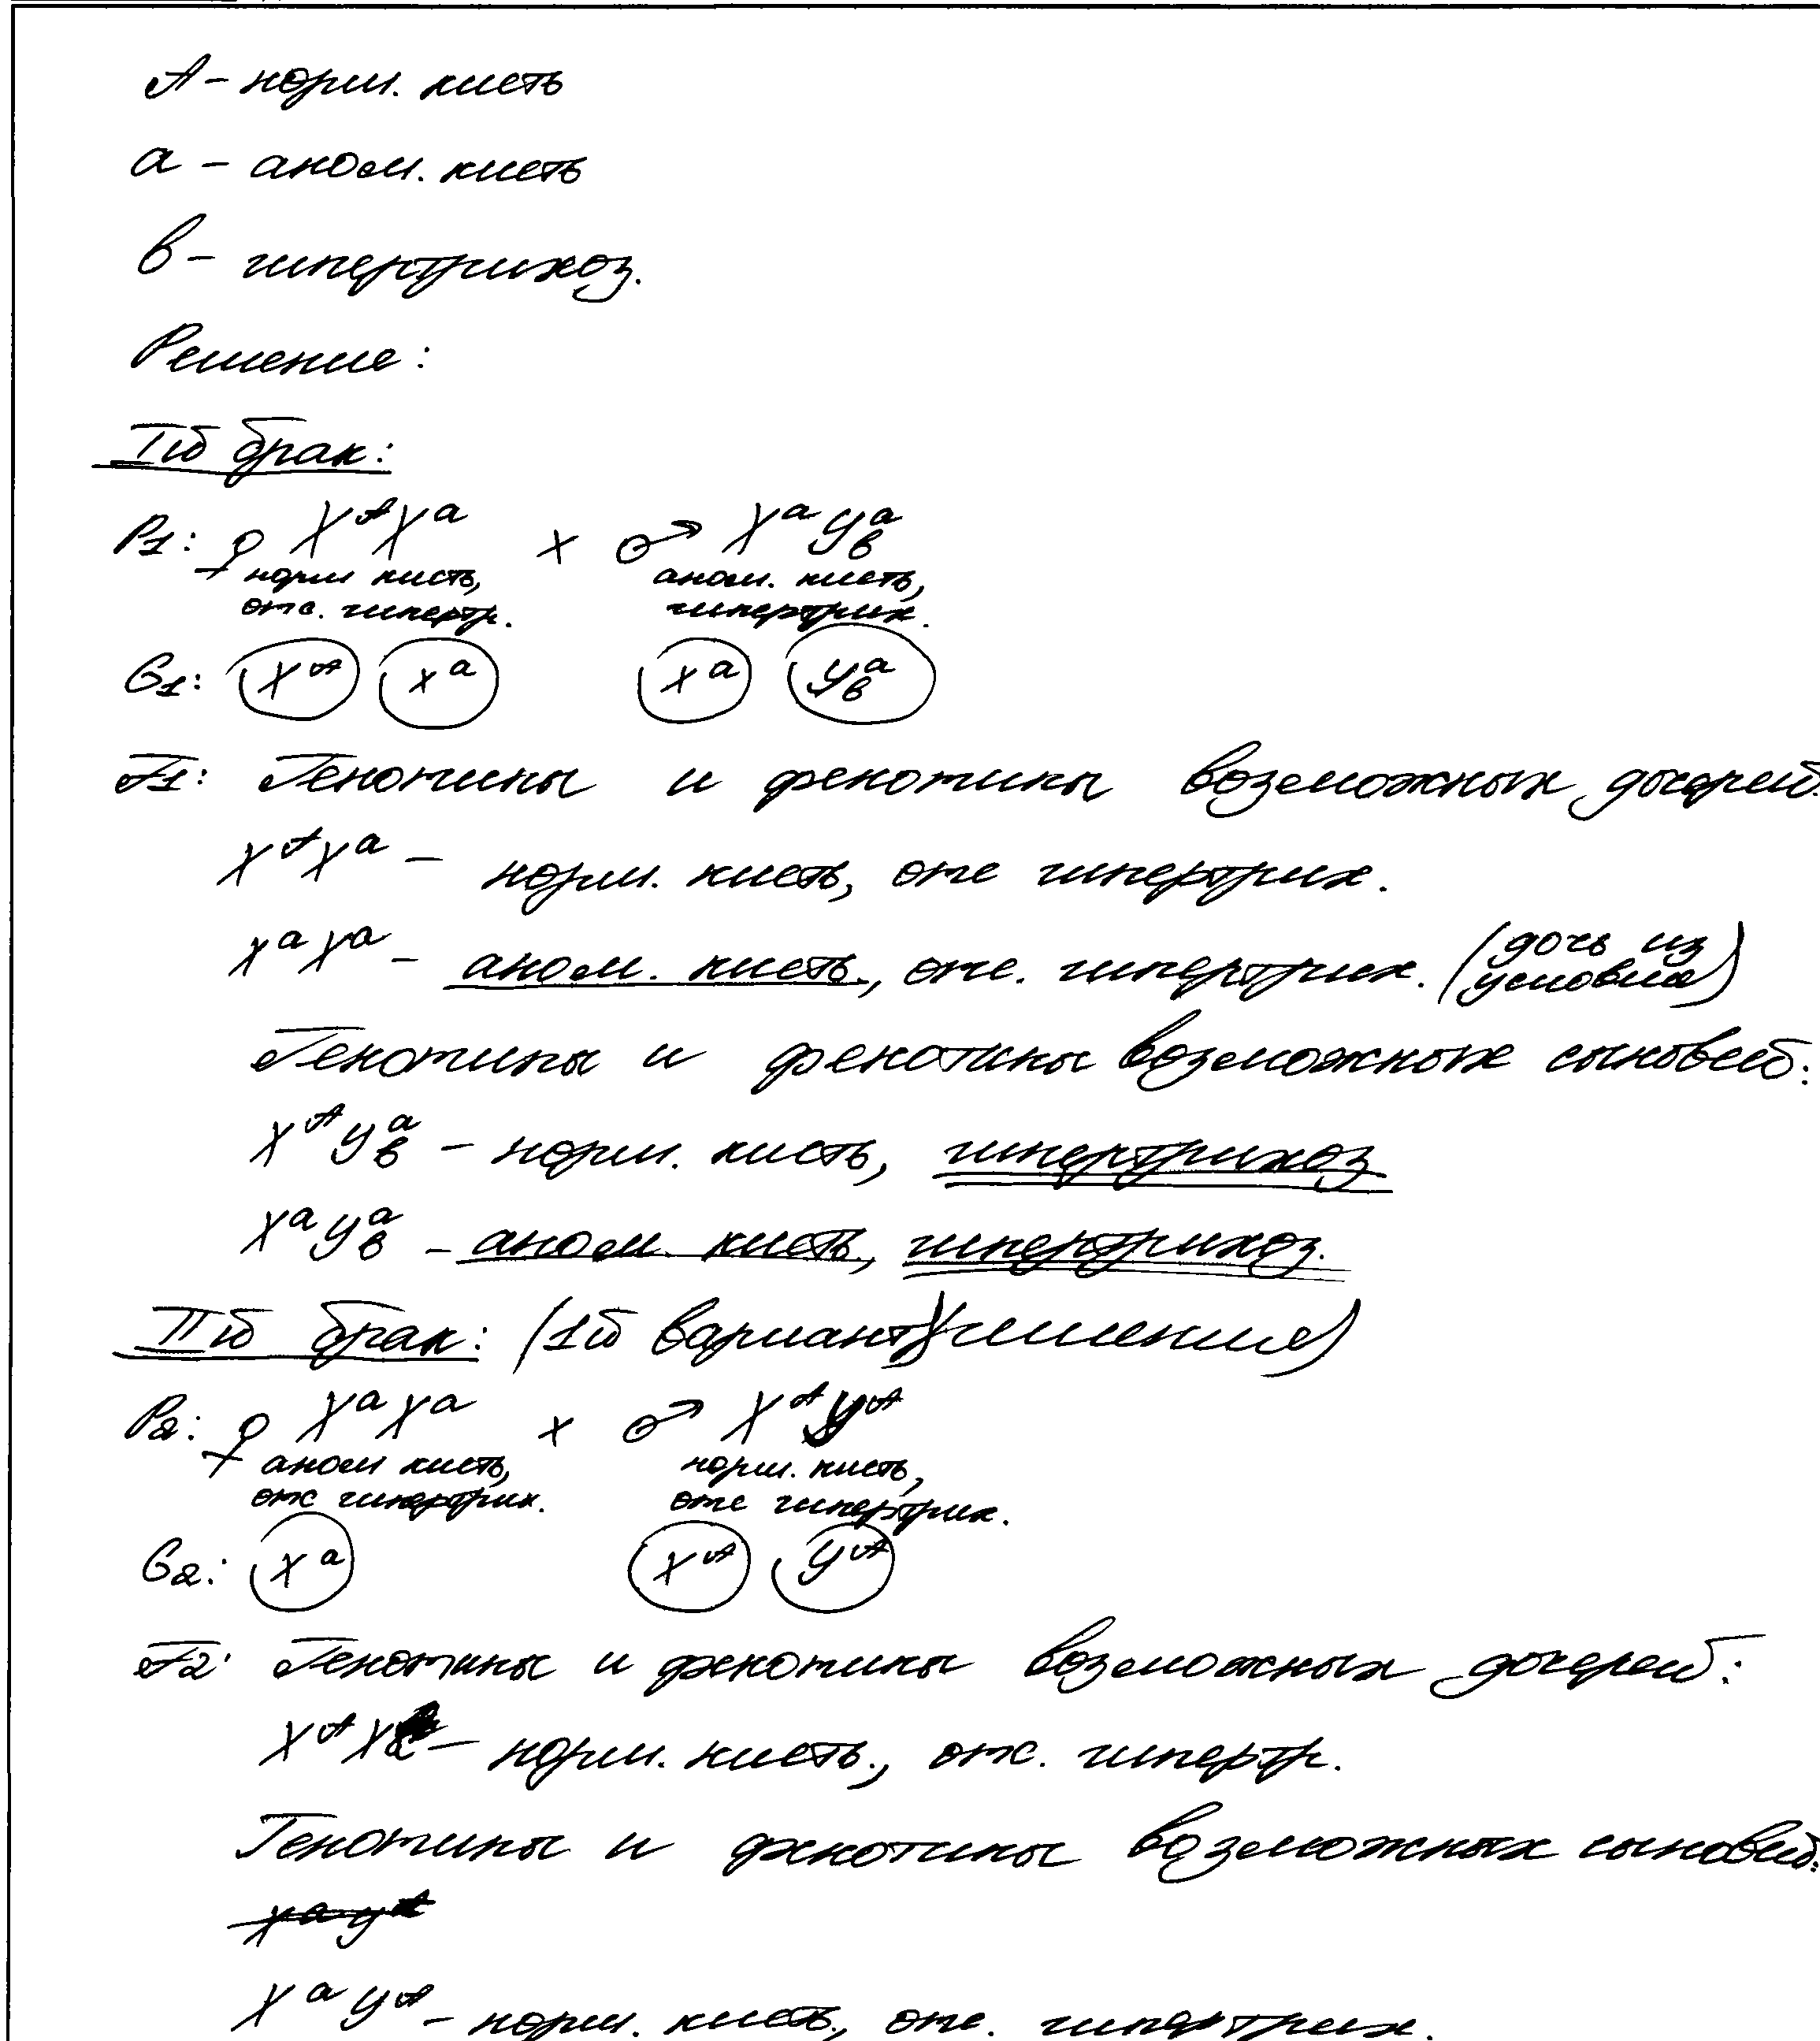 А - норм. кисть
а - аном. кисть
в - гипертрихоз.
Решение:
Iй брак:
P1: ♀ XᴬXᵃ × ♂ XᵃYᵃв
норм кисть, аном. кисть,
отс. гипертр. гипертрих.
G1: Xᴬ Xᵃ Xᵃ Yᵃв
F1: Генотипы и фенотипы возможных дочерей:
XᴬXᵃ - норм. кисть, отс гипертрих.
XᵃXᵃ - аном. кисть, отс. гипертрих. (дочь из условия)
Генотипы и фенотипы возможных сыновей:
XᴬYᵃв - норм. кисть, гипертрихоз
XᵃYᵃв - аном. кисть, гипертрихоз.
IIй брак: (1й вариант решения)
P2: ♀ XᵃXᵃ × ♂ XᴬYᴬ
аном кисть, норм. кисть,
отс гипертрих. отс гипертрих.
G2: Xᵃ Xᴬ Yᴬ
F2: Генотипы и фенотипы возможных дочерей:
XᴬXᵃ - норм. кисть., отс. гипертр.
Генотипы и фенотипы возможных сыновей:
XᵃYᴬ - норм. кисть., отс. гипертрих.